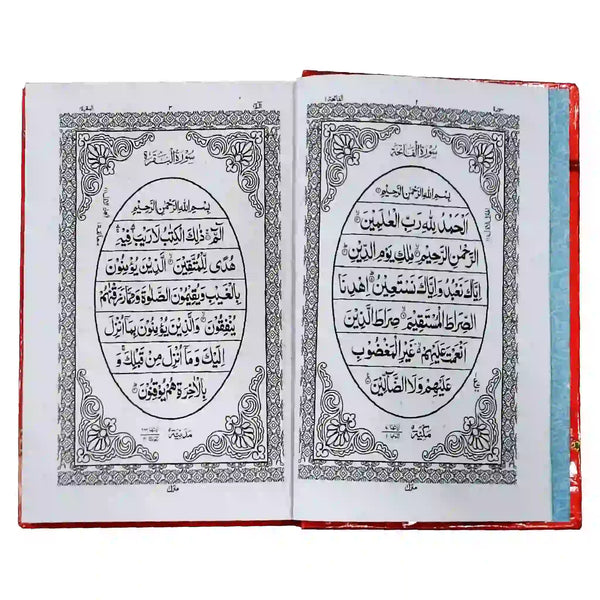 سورة الفاتحة
بِسْمِ اللهِ الرَّحْمٰنِ الرَّحِيْمِ
اَلْحَمْدُ لِلّٰهِ رَبِّ الْعٰلَمِيْنَ
الرَّحْمٰنِ الرَّحِيْمِ مٰلِكِ يَوْمِ الدِّيْنِ
اِيَّاكَ نَعْبُدُ وَاِيَّاكَ نَسْتَعِيْنُ اِهْدِنَا
الصِّرَاطَ الْمُسْتَقِيْمَ صِرَاطَ الَّذِيْنَ
اَنْعَمْتَ عَلَيْهِمْ غَيْرِ الْمَغْضُوْبِ
عَلَيْهِمْ وَلَا الضَّآلِّيْنَ
مكية
البقرة
٣
سورة البقرة
بِسْمِ اللهِ الرَّحْمٰنِ الرَّحِيْمِ
الٓمّٓ ذٰلِكَ الْكِتٰبُ لَا رَيْبَ فِيْهِ
هُدًى لِّلْمُتَّقِيْنَ الَّذِيْنَ يُؤْمِنُوْنَ
بِالْغَيْبِ وَيُقِيْمُوْنَ الصَّلٰوةَ وَمِمَّا رَزَقْنٰهُمْ
يُنْفِقُوْنَ وَالَّذِيْنَ يُؤْمِنُوْنَ بِمَآ اُنْزِلَ
اِلَيْكَ وَمَآ اُنْزِلَ مِنْ قَبْلِكَ وَ
بِالْاٰخِرَةِ هُمْ يُوْقِنُوْنَ
مدنية